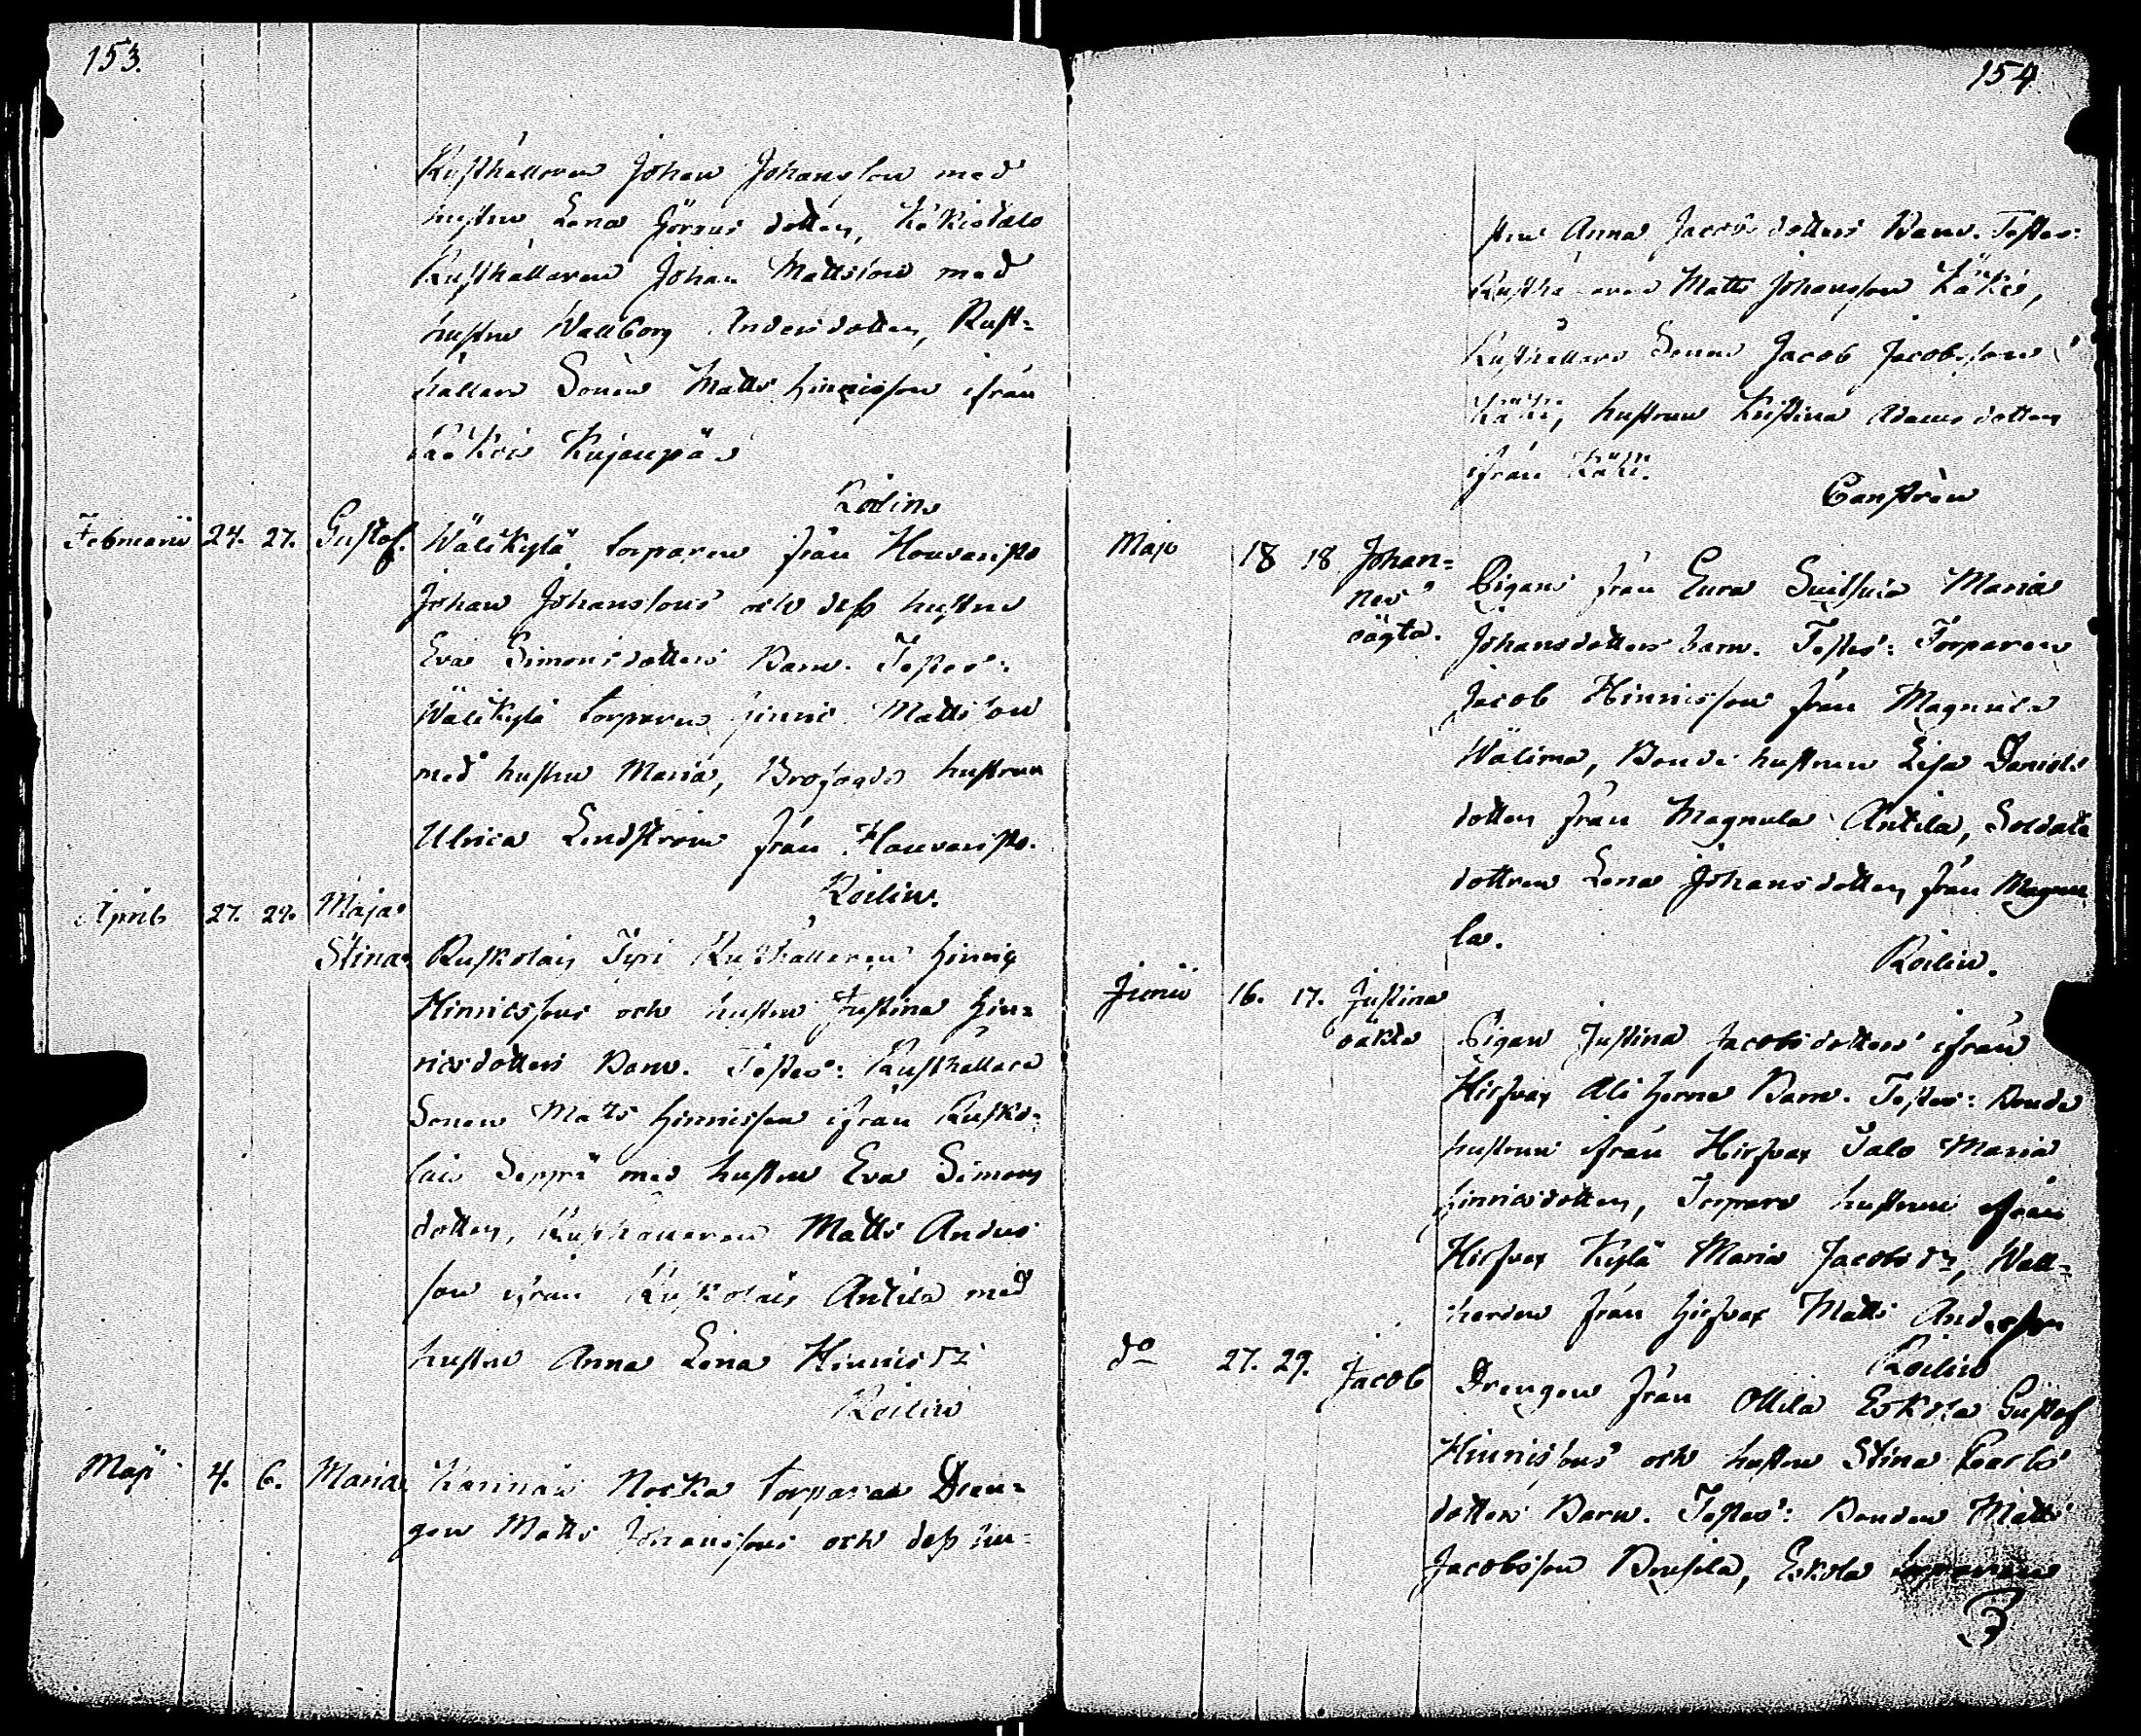 153.
Rusthållaren Johan Johansson med
hustru Lena Görans dotter, Käkistalo
Rusthållaren Johan Mattsson med
hustru Wallborg Andersdotter, Rust=
hållare Sonen Matts Hinricsson ifrån
Kujanpää
Roilin
Februarii 24. 27. Gustof. Wälikylä torparen från Honvaristo
Johan Johanssons och dess hustru
Eva Simonsdotters Barn. Testes:
Wälikylä torparen Hinric Mattsson
med hustru Maria, Brofogds hustrun
Ulrica Lindström från Hauvaristo.
Roilin.
April 27. 29. Maja
Stina Ruskolais Tyri Rusthållaren Hinric
Hinricssons och hustru Justina Hin=
ricsdotters Barn. Testes: Rusthållare
Sonen Matts Hinricsson ifrån Rusko=
lais Seppä med hustru Eva Simons
dotter, Rusthållaren Matts Anders
son ifrån Ruskolais Antila med
hustru Anna Lena Hinrics dr
Roilin
Maji 4. 6. Maria Karinais Nocka torpares Dren=
gen Matts Johanssons och dess hu=
154
stru Anna Jacobsdotters Barn. Testes:
Rusthållaren Matts Johansson Käkis,
Rusthållare Sonen Jacob Jacobsson
Käki, hustrun Kristina Adams dotter
ifrån Käki.
Canstrèn
Maji 18 18 Johan=
nes
oägta. Pigans från Eura Suitsuis Maria
Johansdotters barn. Testes: Torparen
Jacob Hinricsson från Magnula
Wälimä, Bonde hustrun Lisa Daniels
dotter från Magnula Antila, Soldats
dottren Lena Johansdotter från Magnu
la.
Roilin.
Junii 16. 17. Justina
oäkta Pigan Justina Jacobsdotters ifrån
Hirfvax Ali Herne Barn. Testes: Bonde
hustrun ifrån Hirfvax Salo Maria
Hinricsdotter, Torpare hustrun ifrån
Hirfvax Kylä Maria Jacobs dr, Wall=
herden från Hirfvax Matts Andersson
Roilin
do 27. 29. Jacob Drengen från Ottila Eskola Gustof
Hinricssons och hustru Stina Carls
dotters Barn. Testes: Bonden Matts
Jacobsson Bousila, Eskola torparen